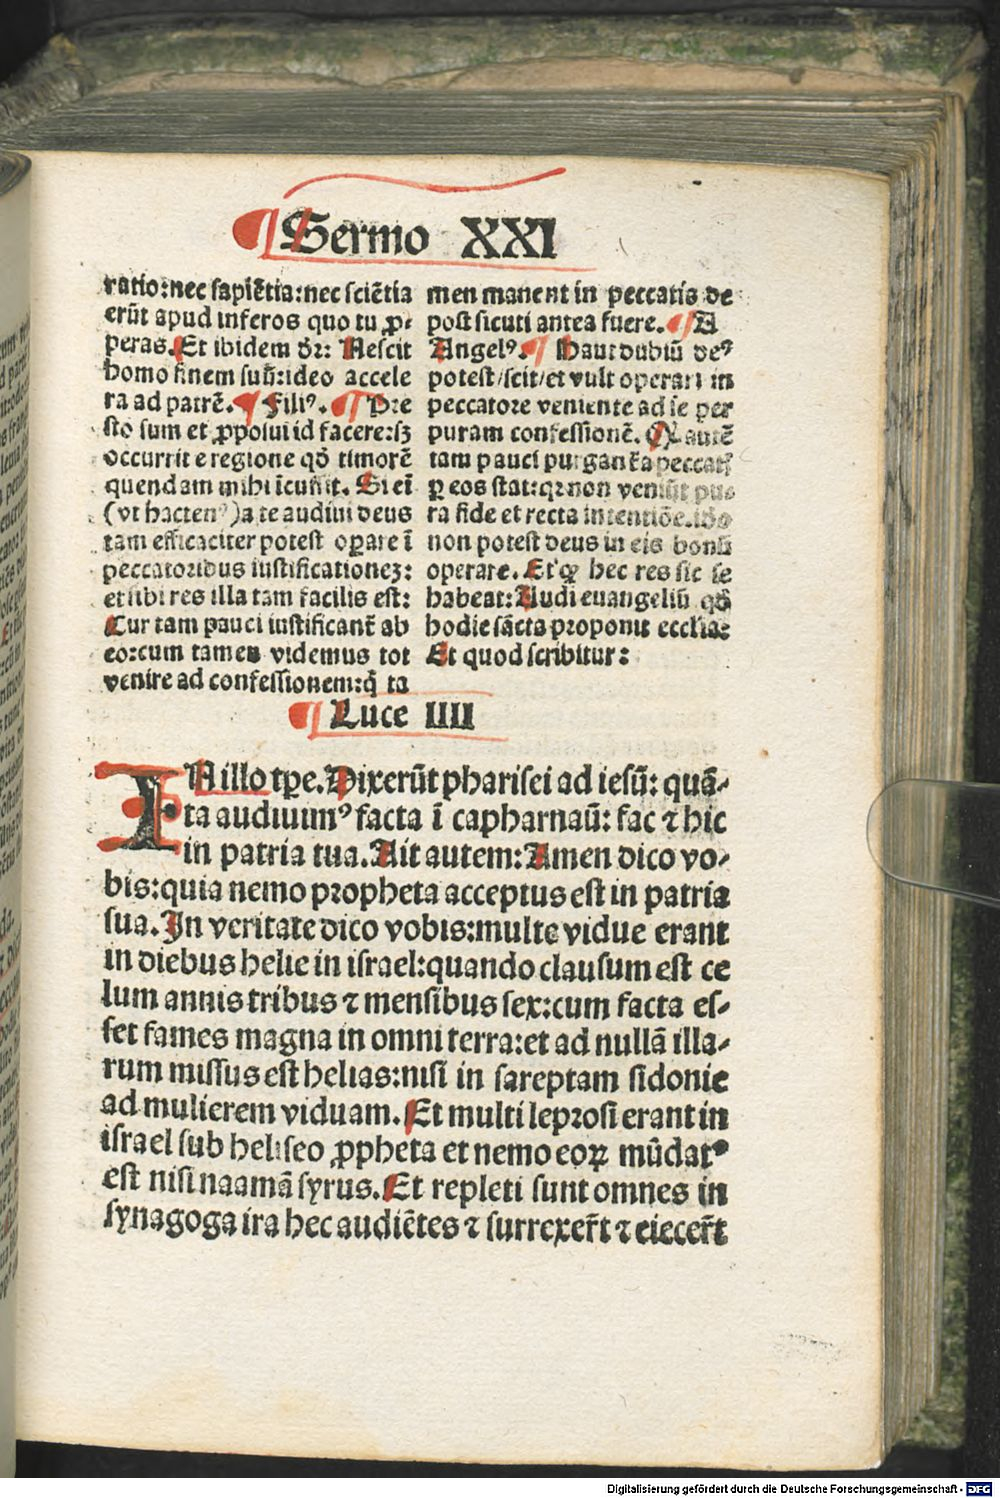 ¶ Sermo XXI
ratio: nec sapiẽtia: nec sciẽtia
erũt apud inferos quo tu ꝓ-
peras. Et ibidem dr̄: Nescit
homo finem suū: ideo accele
ra ad patrẽ. ¶ Filiꝰ. ¶ Pre
sto sum et ꝓposui id facere: sꝫ
occurrit e regione qd̄ timorẽ
quendam mihi ĩcutit. Si eĩ
(vt hactenꝰ) a te audiui deus
tam efficaciter potest oꝑare ĩ
peccatoribus iustificationeꝫ:
et sibi res illa tam facilis est:
Cur tam pauci iustificant̄ ab
eo: cum tamen videmus tot
venire ad confessionem: q̄ ta
men manent in peccatis de
post sicuti antea fuere. ¶ A
Angelꝰ. ¶ Haut dubiũ deꝰ
potest/scit/et vult operari in
peccatore veniente ad se per
puram confessionẽ. Q autẽ
tam pauci purgant̄ a peccat̄
ꝑ eos stat: qꝛ non veniũt pu-
ra fide et recta intentiõe. iđo
non potest deus in eis bonũ
operare. Et ꝙ hec res sic se
habeat: Audi euangeliũ qd̄
hodie sãcta proponit ecclia:
Et quod scribitur:
¶ Luce IIII
IN illo tꝑe. Dixerũt pharisei ad iesũ: quã-
ta audiuimꝰ facta ĩ capharnaũ: fac ⁊ hic
in patria tua. Ait autem: Amen dico vo-
bis: quia nemo propheta acceptus est in patria
sua. In veritate dico vobis: multe vidue erant
in diebus helie in israel: quando clausum est ce
lum annis tribus ⁊ mensibus sex: cum facta es-
set fames magna in omni terra: et ad nullã illa-
rum missus est helias: nisi in sareptam sidonie
ad mulierem viduam. Et multi leprosi erant in
israel sub heliseo ꝓpheta et nemo eoꝝ mũdatꝰ
est nisi naamã syrus. Et repleti sunt omnes in
synagoga ira hec audiẽtes ⁊ surrexer̄t ⁊ eiecer̄t
Digitalisierung gefördert durch die Deutsche Forschungsgemeinschaft - DFG